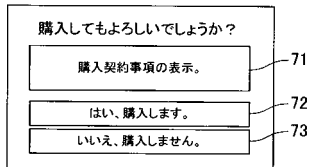 購入してもよろしいでしょうか？
購入契約事項の表示。 71
はい、購入します。 72
いいえ、購入しません。 73